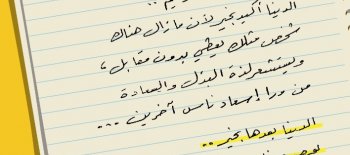 الدنيا أكيد بخير لأن مازال هناك
شخص مثلك يعطي بدون مقابل ،
وليستشعر لذة البذل والسعادة
من ورا إسعاد ناس آخرين ...
الدنيا بعدها بخير ..